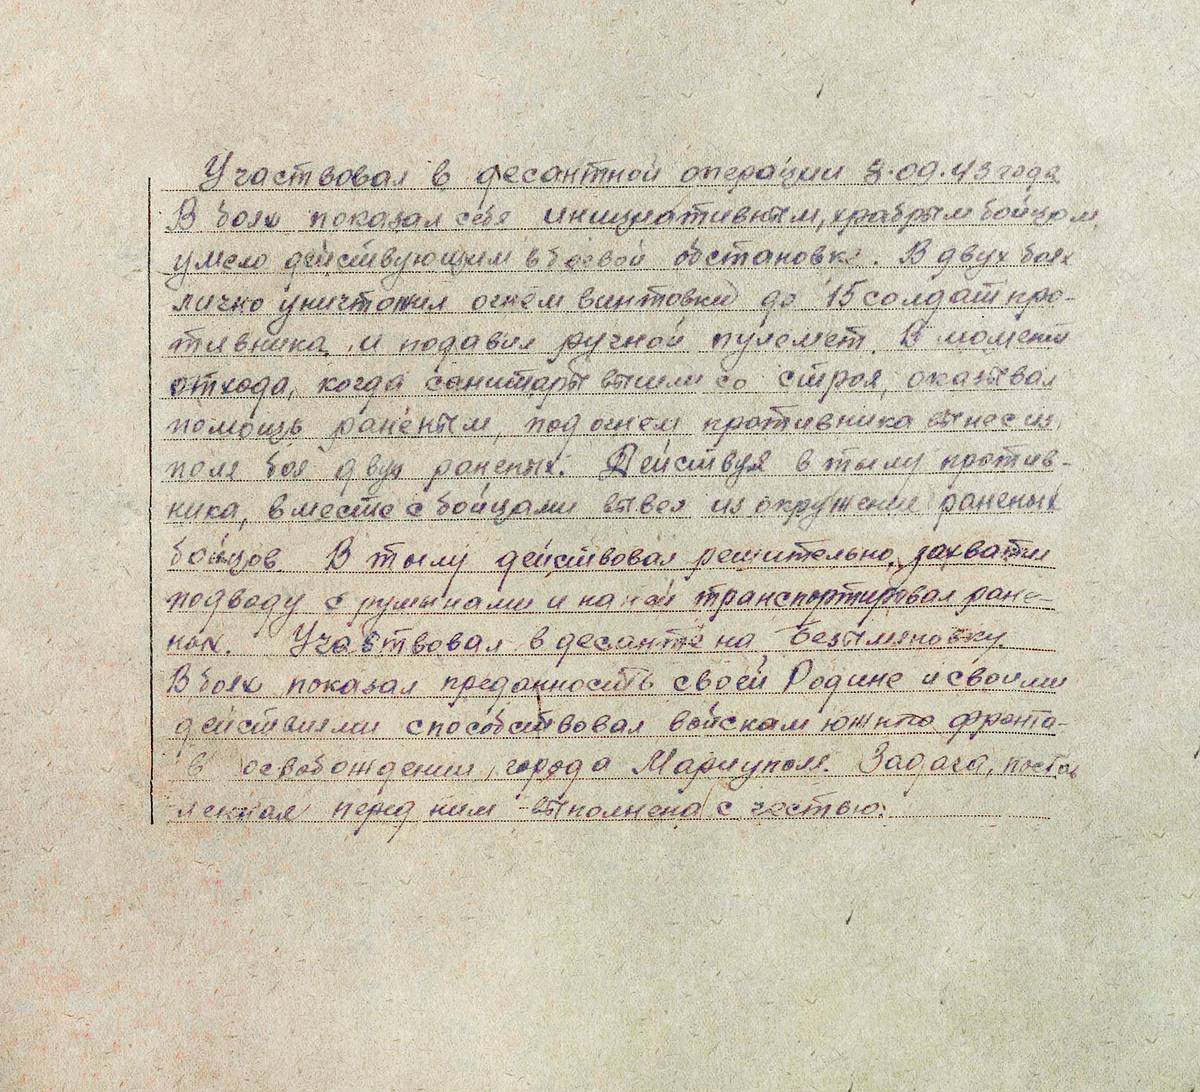 Участвовал в десантной операции 8.09.43 года
В боях показал себя инициативным, храбрым бойцом,
умело действующим в боевой обстановке. В двух боях
лично уничтожил огнем винтовки до 15 солдат про-
тивника и подавил ручной пулемет. В момент
отхода, когда санитары вышли со строя, оказывал
помощь раненым, под огнем противника вынес из
поля боя двух раненых. Действуя в тылу против-
ника, вместе с бойцами вывел из окружение раненых
бойцов. В тылу действовал решительно, захватил
подводу с румынами и на ней транспортировал ране-
ных. Участвовал в десанте на Безымяновку.
В боях показал преданность своей Родине и своими
действиями способствовал войскам южного фронта
в освобождении города Мариуполя. Задача, постав
ленная перед ним выполнена с честью.